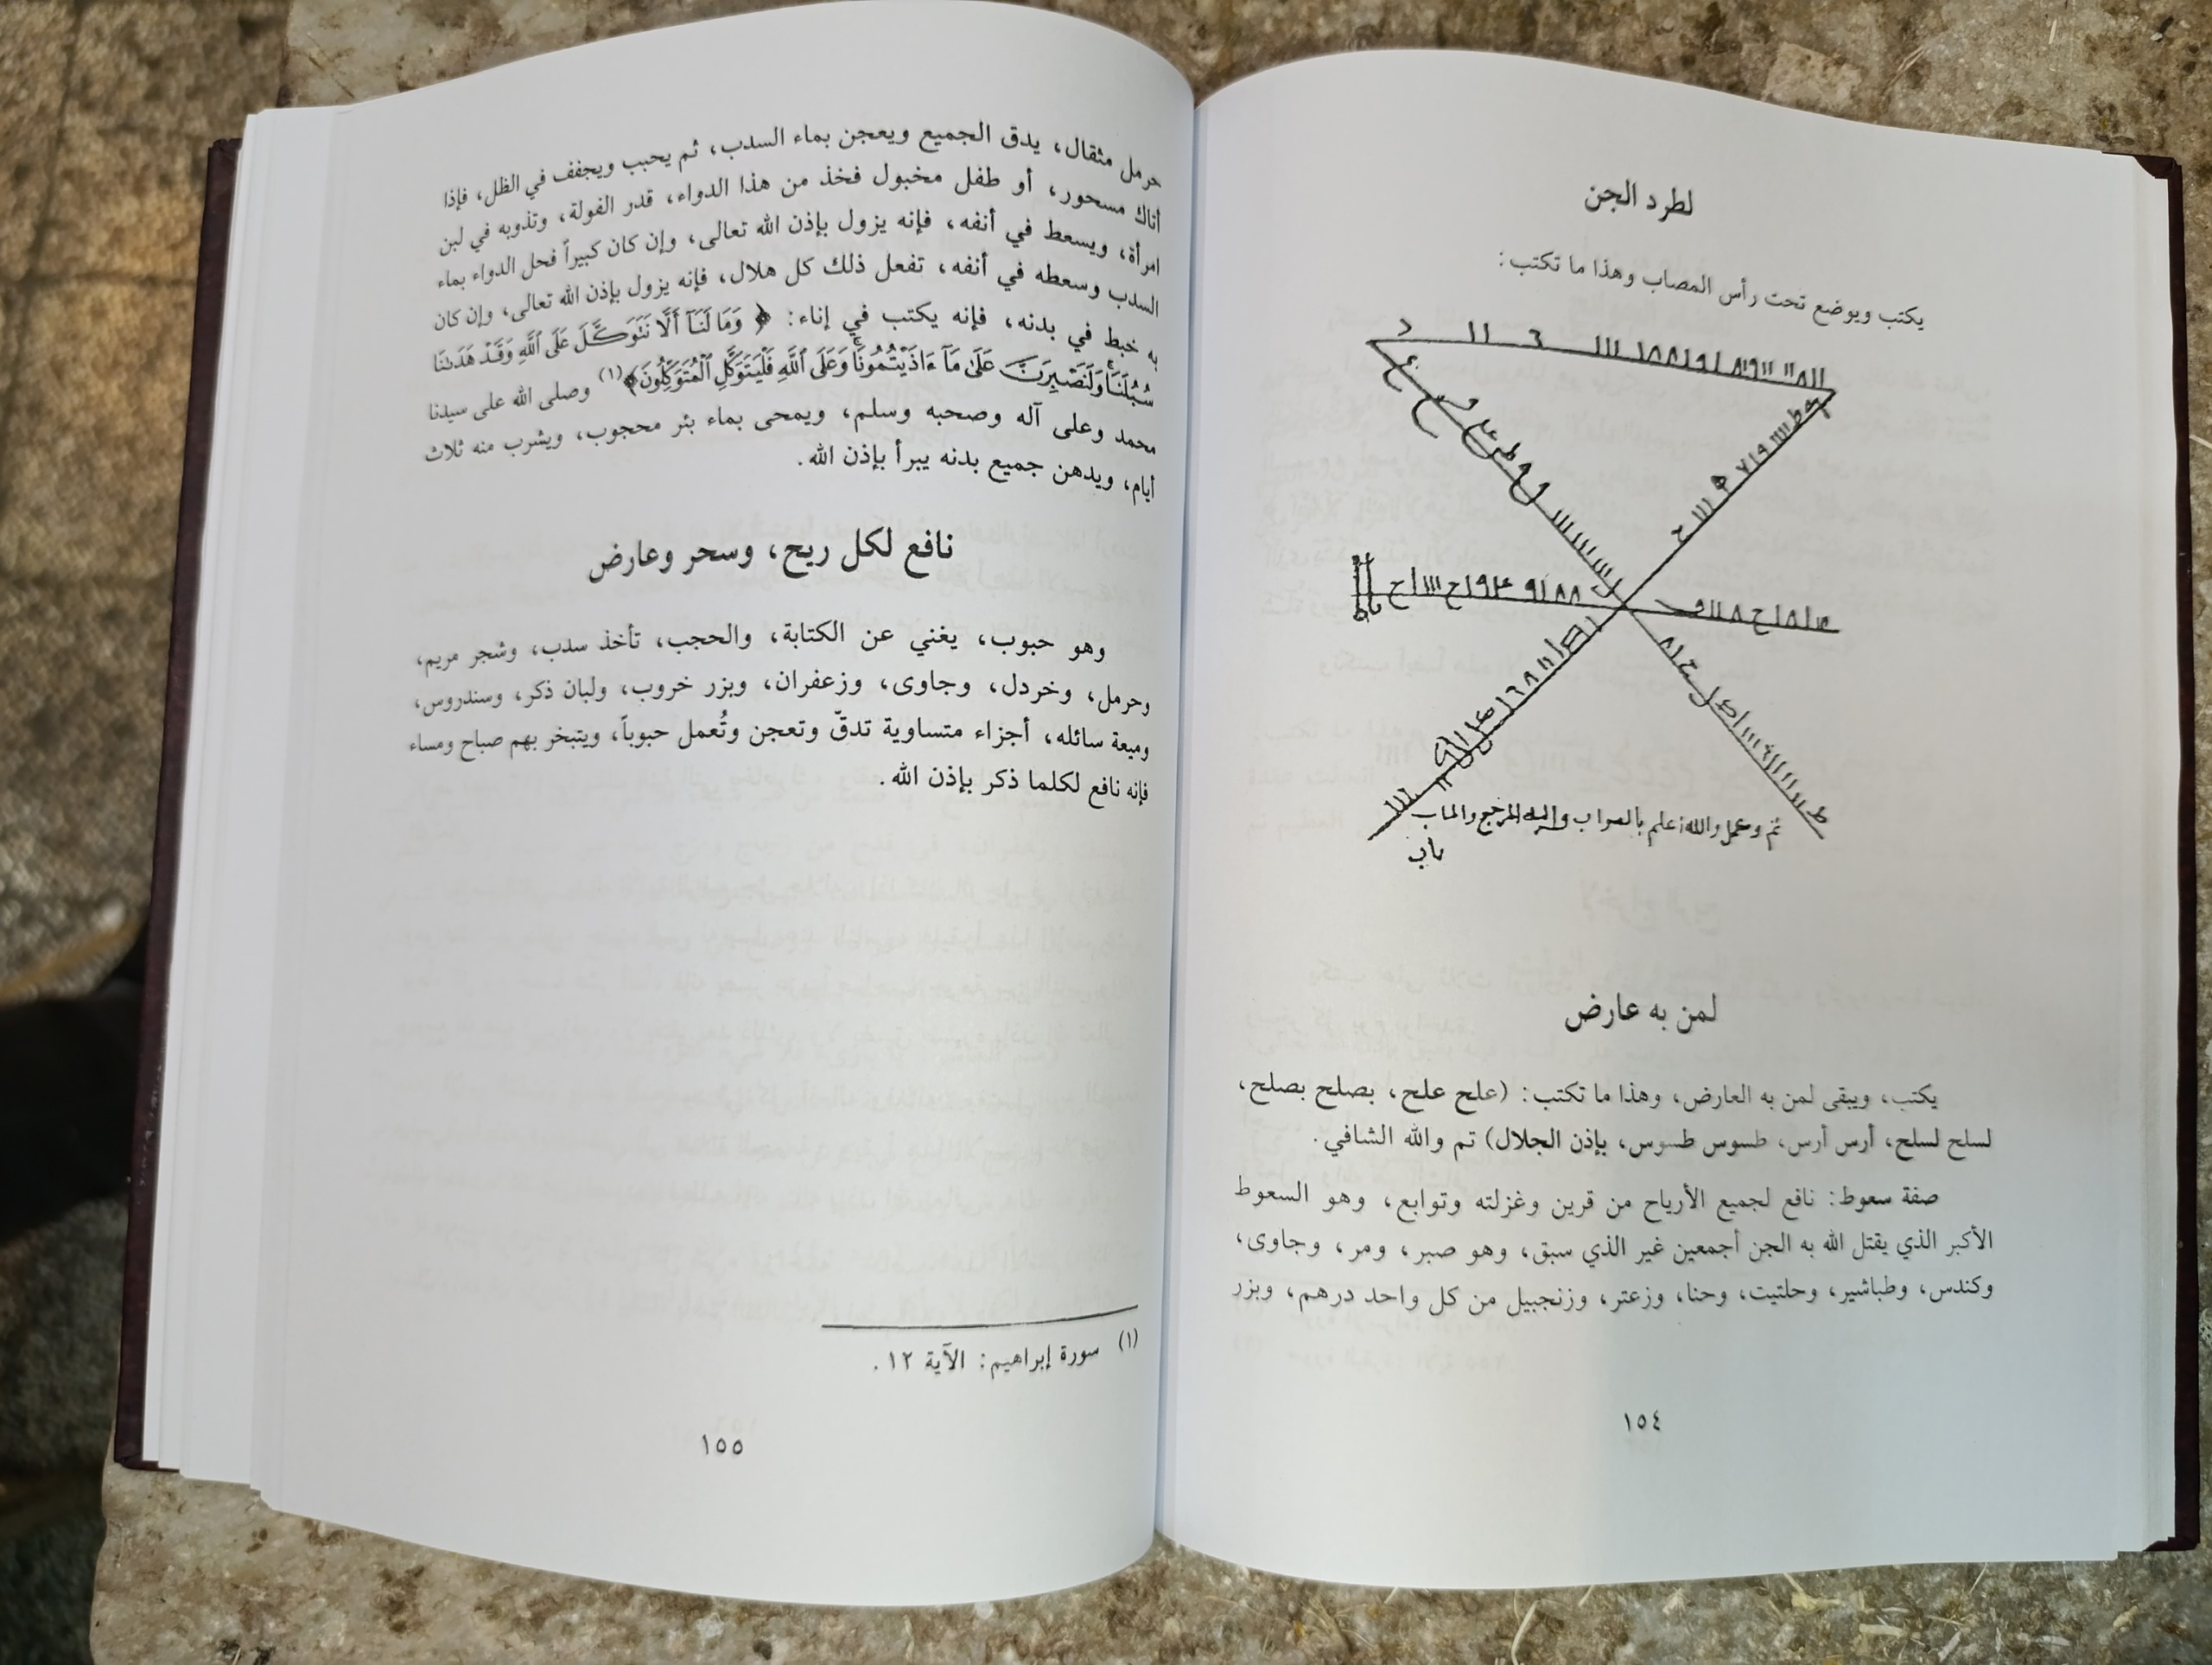 لطرد الجن
يكتب ويوضع تحت رأس المصاب وهذا ما تكتب:
تم وعمل والله أعلم بالصواب وإليه المرجع والمآب
لمن به عارض
يكتب، ويبقى لمن به العارض، وهذا ما تكتب: (علح علح، بصلح بصلح،
لسلح لسلح، أرس أرس، طسوس طسوس، بإذن الجلال) تم والله الشافي.
صفة سعوط: نافع لجميع الأرياح من قرين وغزلته وتوابع، وهو السعوط
الأكبر الذي يقتل الله به الجن أجمعين غير الذي سبق، وهو صبر، ومر، وجاوى،
وكندس، وطباشير، وحلتيت، وحنا، وزعتر، وزنجبيل من كل واحد درهم، وبزر
١٥٤
حرمل مثقال، يدق الجميع ويعجن بماء السدب، ثم يحبب ويجفف في الظل، فإذا
أتاك مسحور، أو طفل مخبول فخذ من هذا الدواء، قدر الفولة، وتذوبه في لبن
امرأة، ويسعط في أنفه، فإنه يزول بإذن الله تعالى، وإن كان كبيراً فحل الدواء بماء
السدب وسعطه في أنفه، تفعل ذلك كل هلال، فإنه يزول بإذن الله تعالى، وإن كان
به خبط في بدنه، فإنه يكتب في إناء: ﴿ وَمَا لَنَآ أَلَّا نَتَوَكَّلَ عَلَى ٱللَّهِ وَقَدْ هَدَىٰنَا
سُبُلَنَا وَلَنَصْبِرَنَّ عَلَىٰ مَآ ءَاذَيْتُمُونَا وَعَلَى ٱللَّهِ فَلْيَتَوَكَّلِ ٱلْمُتَوَكِّلُونَ﴾(١) وصلى الله على سيدنا
محمد وعلى آله وصحبه وسلم، ويمحى بماء بئر محجوب، ويشرب منه ثلاث
أيام، ويدهن جميع بدنه يبرأ بإذن الله.
نافع لكل ريح، وسحر وعارض
وهو حبوب، يغني عن الكتابة، والحجب، تأخذ سدب، وشجر مريم،
وحرمل، وخردل، وجاوى، وزعفران، وبزر خروب، ولبان ذكر، وسندروس،
وميعة سائله، أجزاء متساوية تدقّ وتعجن وتُعمل حبوباً، ويتبخر بهم صباح ومساء
فإنه نافع لكلما ذكر بإذن الله.
(١) سورة إبراهيم: الآية ١٢.
١٥٥